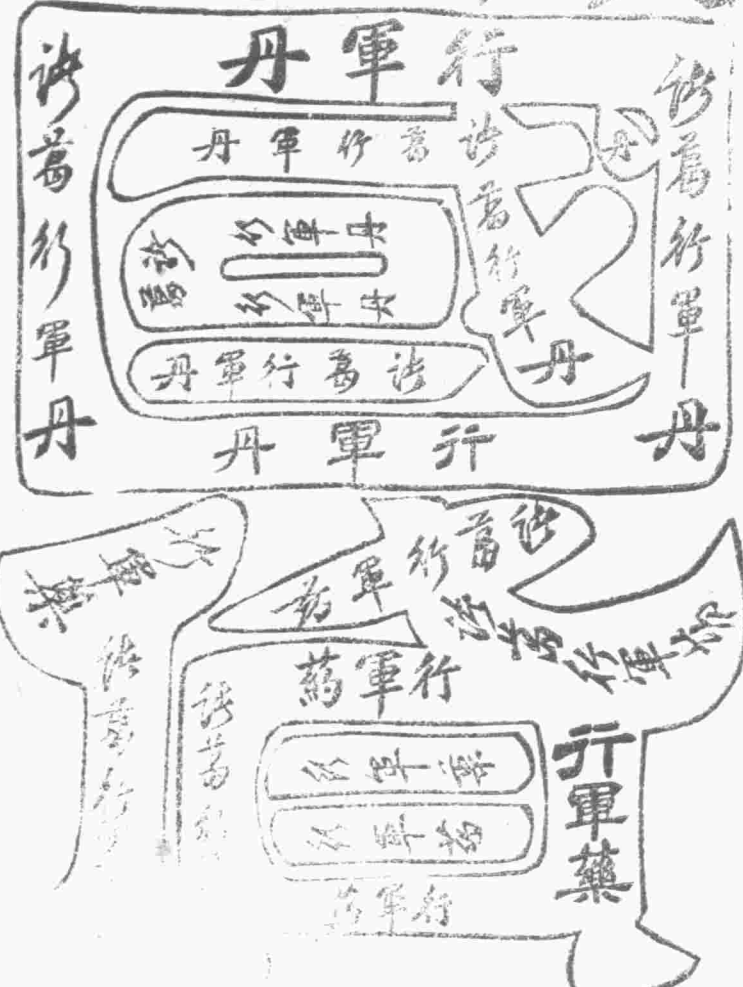 行軍丹
諸葛行軍丹
諸葛行軍丹
諸葛行軍丹
諸葛行軍丹
丹
諸葛
行軍丹
行軍丹
諸葛行軍丹
行軍丹
行軍藥
諸葛行軍藥
諸葛行軍藥
諸葛行
諸葛
行軍藥
行軍藥
行軍藥
行軍藥
行軍藥